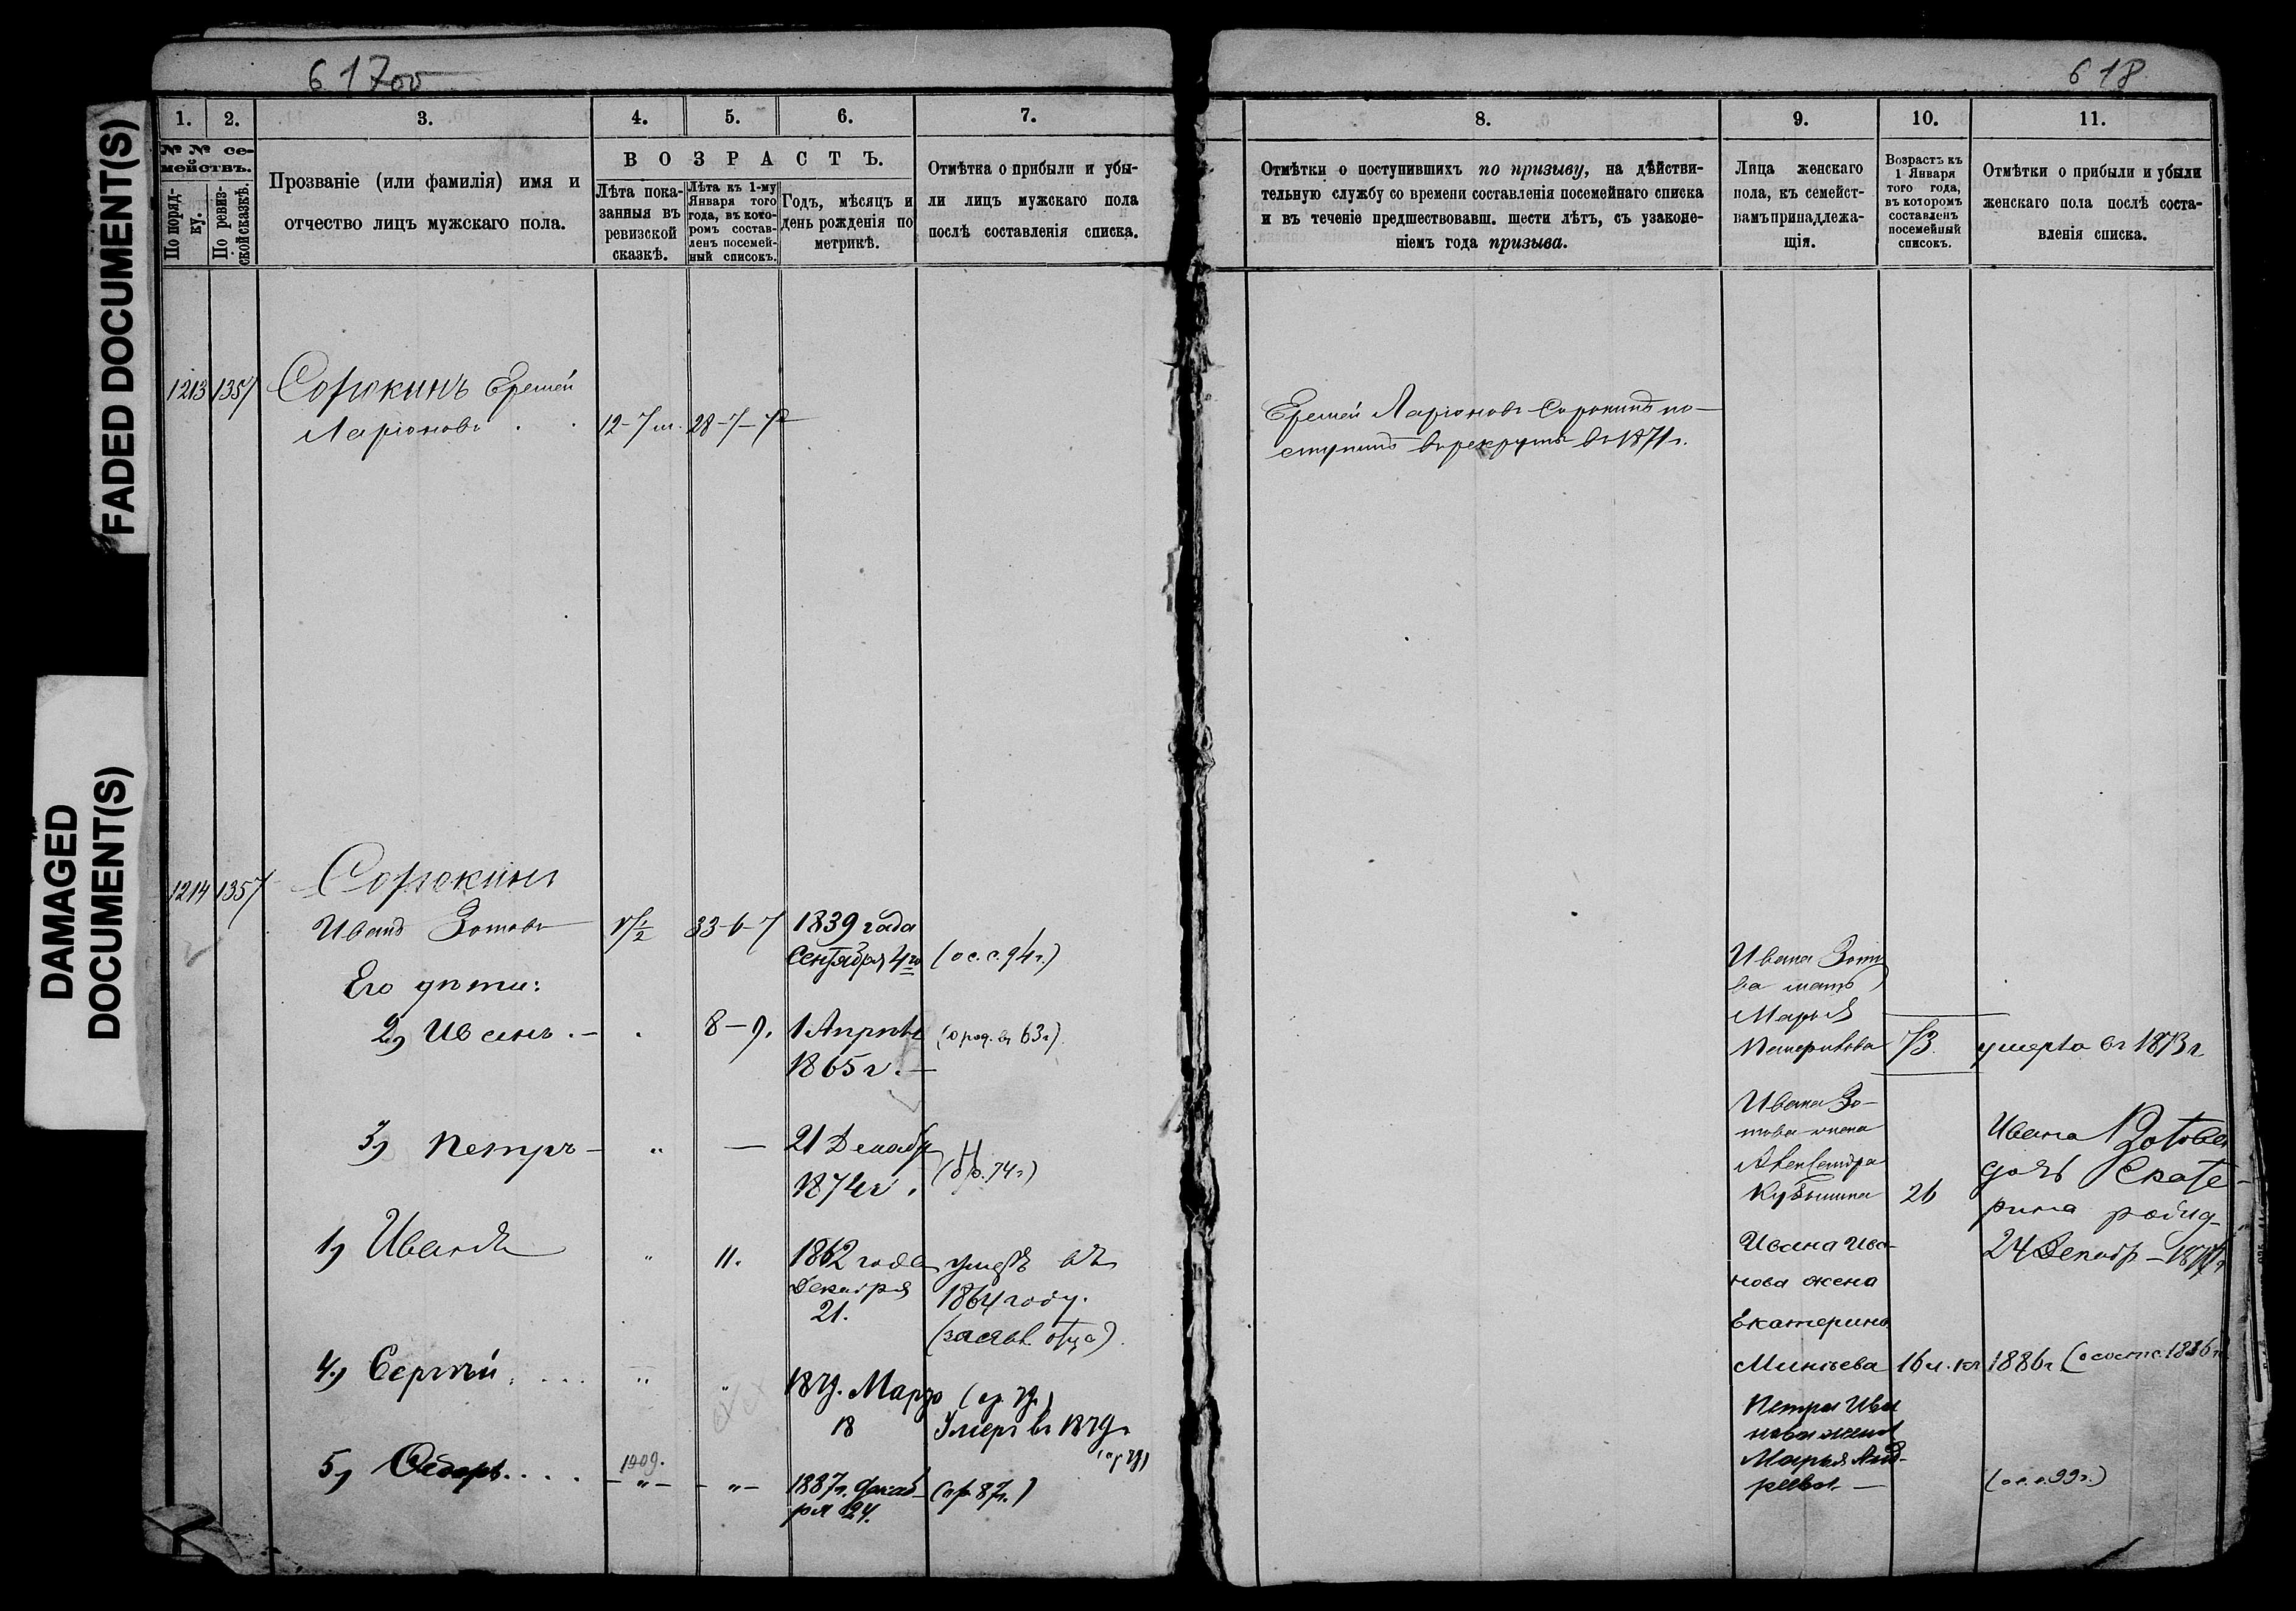 FADED DOCUMENT(S)
DAMAGED
DOCUMENT(S)
617об
618
1. 2. 3. 4. 5. 6. 7.
№ № се-
мействъ.
По поряд-
ку.
По ревиз-
ской сказкѣ.
Прозваніе (или фамилія) имя и
отчество лицъ мужскаго пола.
ВОЗРАСТЪ.
Лѣта пока-
занныя въ
ревизской
сказкѣ.
Лѣта къ 1-му
Января того
года, въ кото-
ромъ состав-
ленъ посемей-
ный списокъ.
Годъ, мѣсяцъ и
день рожденія по
метрикѣ.
Отмѣтка о прибыли и убы-
ли лицъ мужскаго пола
послѣ составленія списка.
1213 1357 Сорокинъ Еремей
Ларіоновъ 12-7 м. 28-7-7
1214 1357 Сорокины
Иванъ Зотовъ 33-6-7 1839 года
Сентября 4го (о с. с. 94 г.)
Его дѣти:
2) Иванъ 8-9. 1 Апрѣля (о род. въ 63 г.)
1865 г.
3) Петръ " — 21 Декабр
1874 г. (о р. 74 г.)
1) Иванъ " 11. 1862 года умеръ въ
Декабря 1864 году.
21. (заявл. отца)
4) Сергѣй " " 1879. Марта (ор. 79)
18 Умеръ въ 1879 г.
(ор 79)
1909.
5) Ѳедоръ " " 1887 г. декаб- (ор 87 г.)
ря 24.
8. 9. 10. 11.
Отмѣтки о поступившихъ по призыву, на дѣйстви-
тельную службу со времени составленія посемейнаго списка
и въ теченіе предшествовавш. шести лѣтъ, съ узаконе-
ніемъ года призыва.
Лица женскаго
пола, къ семейст-
вамъ принадлежа-
щія.
Возрастъ къ
1 Января
того года,
въ которомъ
составленъ
посемейный
списокъ.
Отмѣтки о прибыли и убыли
женскаго пола послѣ соста-
вленія списка.
Еремей Ларіоновъ Сорокинъ по-
ступилъ въ рекруты въ 1871 г.
Ивана Зото
ва мать
Марья
73. умерла въ 1873 г.
Ивана Зо-
това жена
Александра
26
Ивана Зотова
дочь Екате-
рина родил
24 Декабр
Ивана Ива-
нова жена
Екатерина
Минѣева 16 л. 1886 г. (о сост. с. 1886 г.
Петра Ива
нова жена
Марья Анд-
реева. — (о с. с. 99 г.)